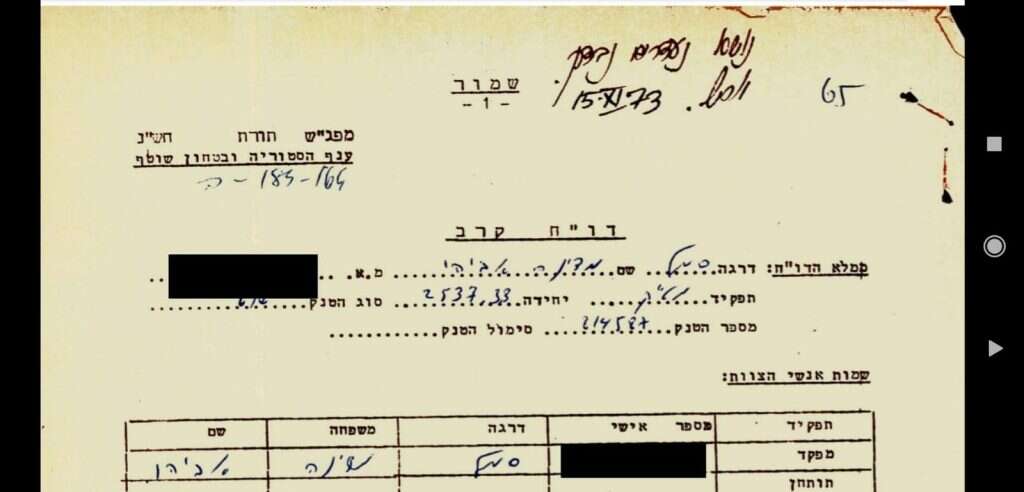 נושא נעדרים נבדק
15.XI.73
65
שמור
- 1 -
מפג"ש תורת חש"נ
ענף הסטוריה ובטחון שוטף
דו"ח קרב
ממלא הדו"ח: דרגה סמל שם מדינה אביהו מ.א.
תפקיד מט"ק יחידה 2537.33 סוג הטנק
מספר הטנק 214587 סימול הטנק
שמות אנשי הצוות:
תפקיד מספר אישי דרגה משפחה שם
מפקד סמל מדינה אביהו
תותחן